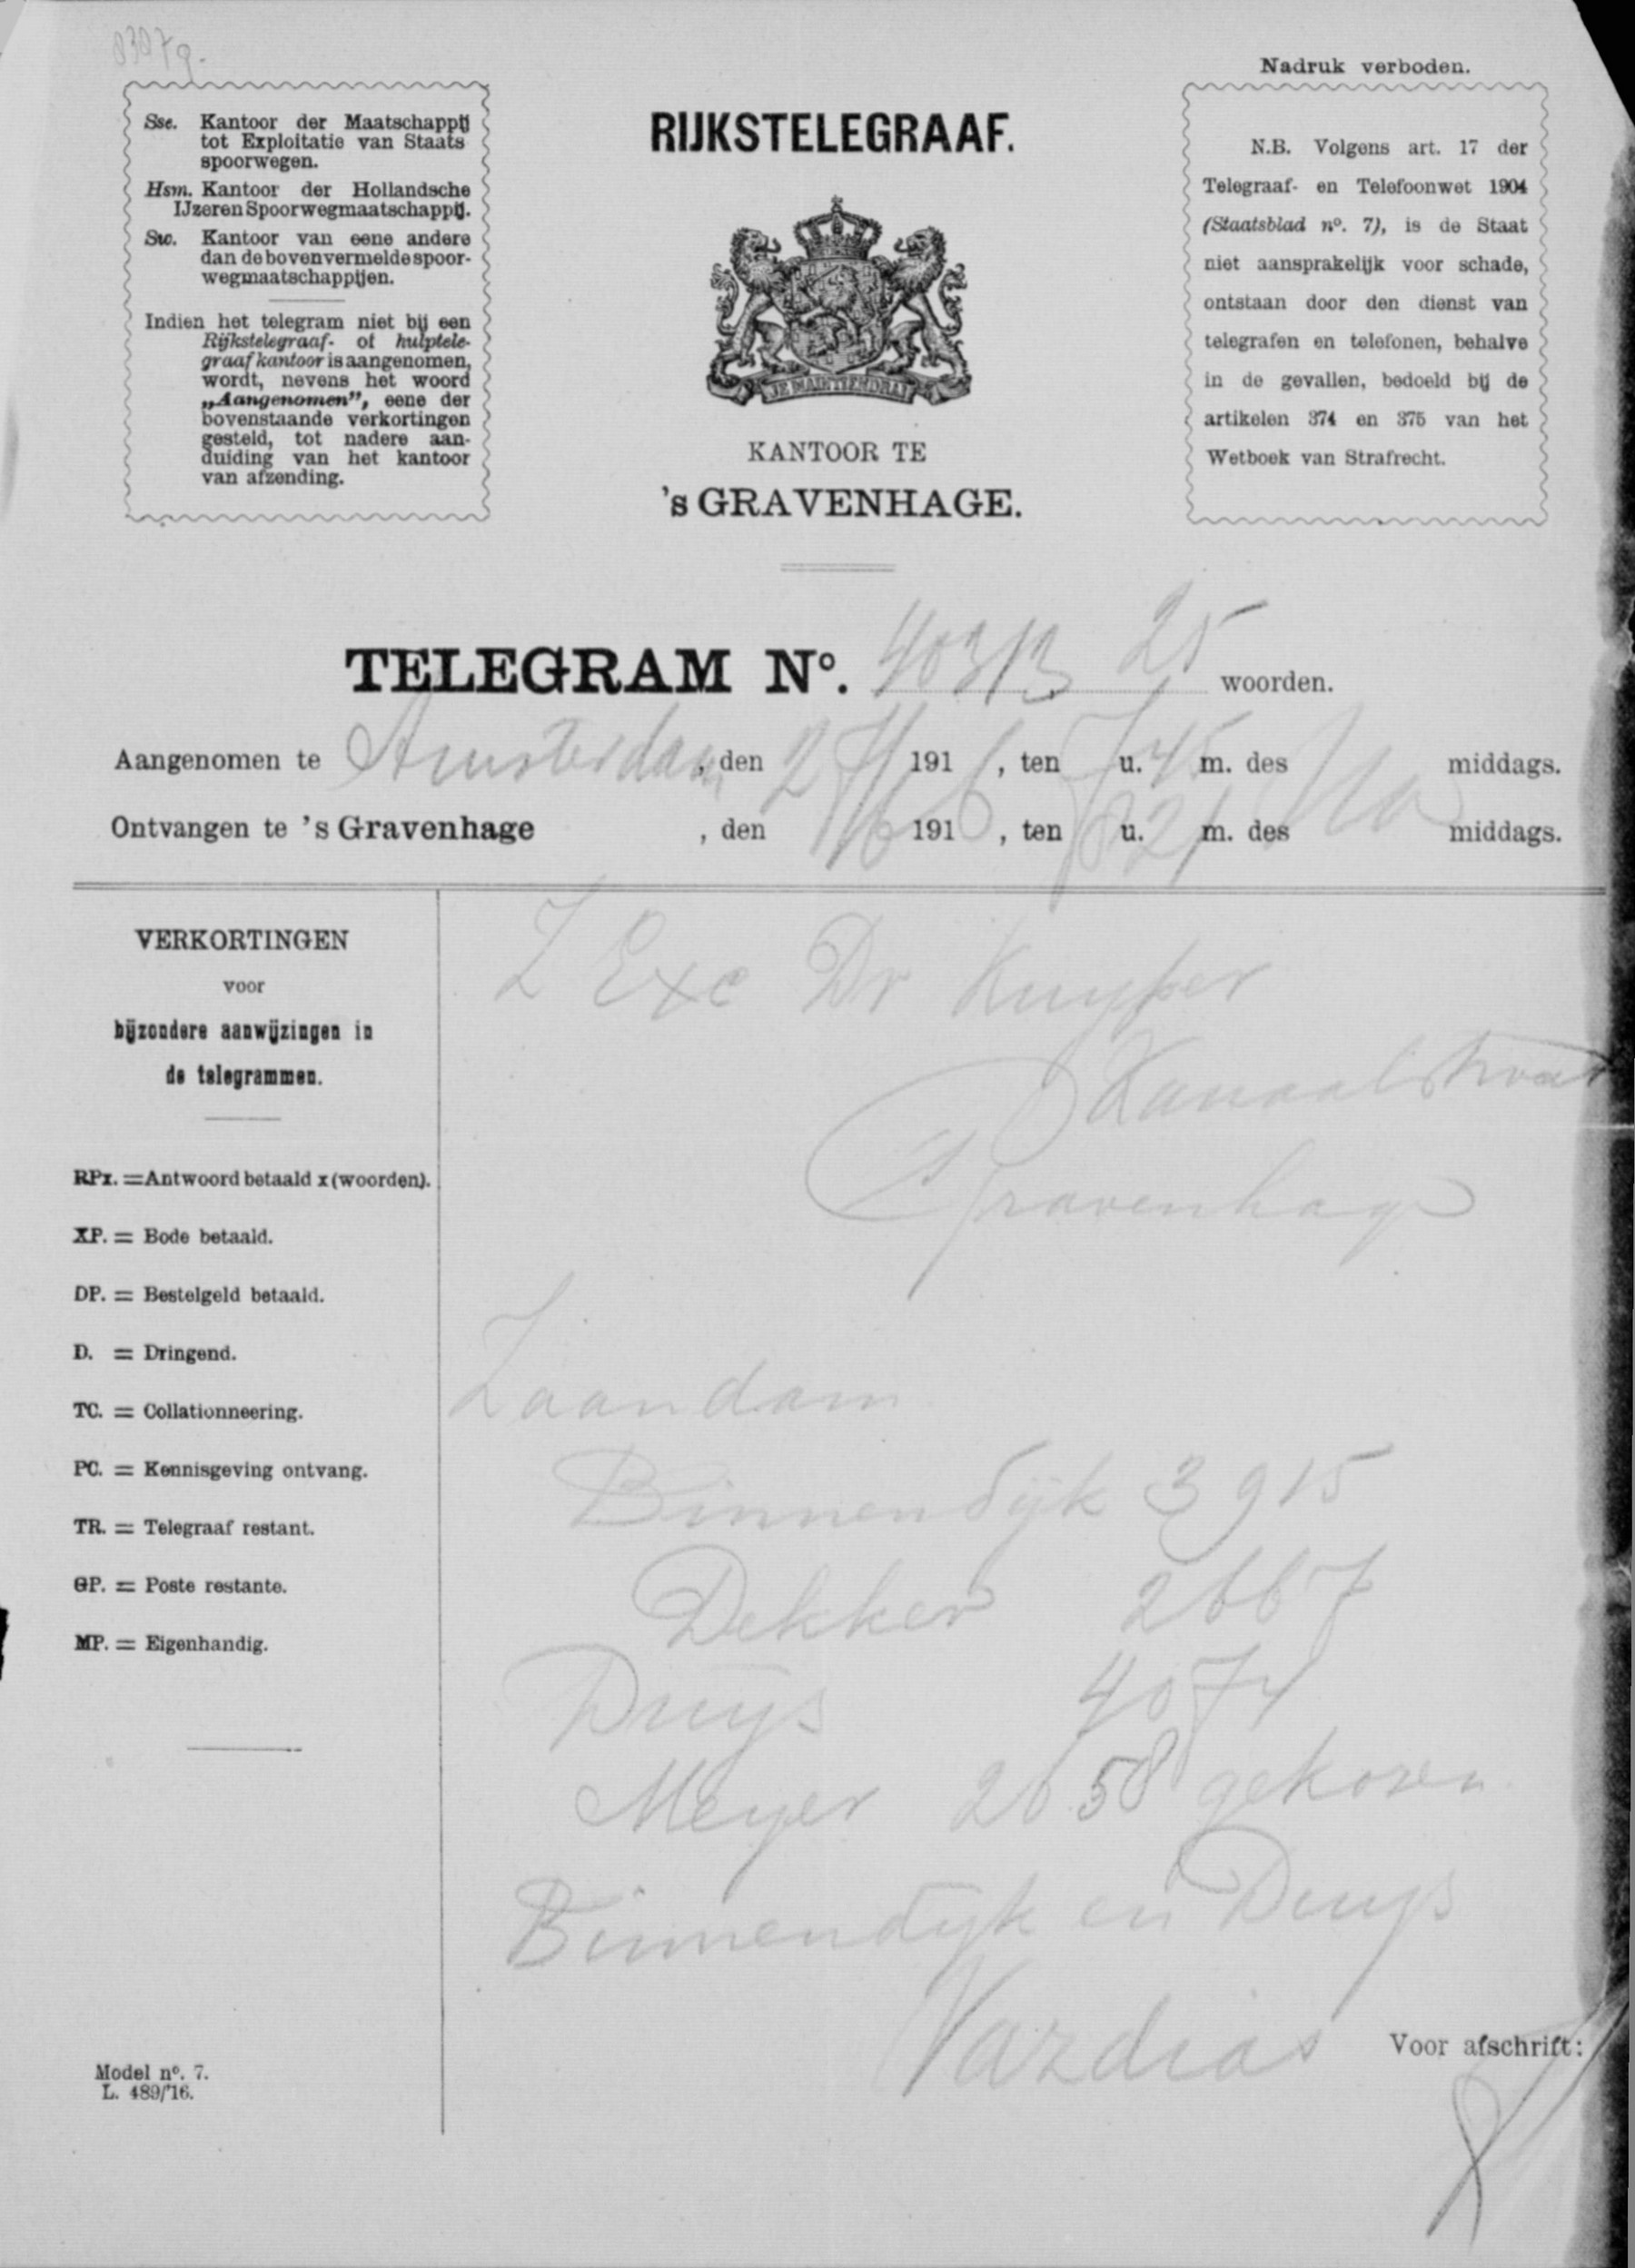 Nadruk verboden.
Sse. Kantoor der Maatschappij
tot Exploitatie van Staats
spoorwegen.
Hsm. Kantoor der Hollandsche
IJzeren Spoorwegmaatschappij.
Sw. Kantoor van eene andere
dan de bovenvermelde spoor-
wegmaatschappijen.
Indien het telegram niet bij een
Rijkstelegraaf- of hulptele-
graafkantoor is aangenomen,
wordt, nevens het woord
„Aangenomen”, eene der
bovenstaande verkortingen
gesteld, tot nadere aan-
duiding van het kantoor
van afzending.
RIJKSTELEGRAAF.
JE MAINTIENDRAI
KANTOOR TE
's GRAVENHAGE.
N.B. Volgens art. 17 der
Telegraaf- en Telefoonwet 1904
(Staatsblad nº. 7), is de Staat
niet aansprakelijk voor schade,
ontstaan door den dienst van
telegrafen en telefonen, behalve
in de gevallen, bedoeld bij de
artikelen 374 en 375 van het
Wetboek van Strafrecht.
TELEGRAM Nº. 40313 25 woorden.
Aangenomen te Amsterdam, den 191 , ten 7 u. 45 m. des Na middags.
Ontvangen te 's Gravenhage , den 1916, ten 8 u. 21 m. des middags.
VERKORTINGEN
voor
bijzondere aanwijzingen in
de telegrammen.
RPx. = Antwoord betaald x (woorden).
XP. = Bode betaald.
DP. = Bestelgeld betaald.
D. = Dringend.
TC. = Collationneering.
PC. = Kennisgeving ontvang.
TR. = Telegraaf restant.
GP. = Poste restante.
MP. = Eigenhandig.
Model nº. 7.
L. 489/'16.
Z Exc Dr Kuyper
Kanaalstraat
s Gravenhage
Zaandam
Binnendijk 3915
Dekker 2667
Duys 4074
Meyer 2658 gekozen
Binnendyk en Duys
Vazdias
Voor afschrift: